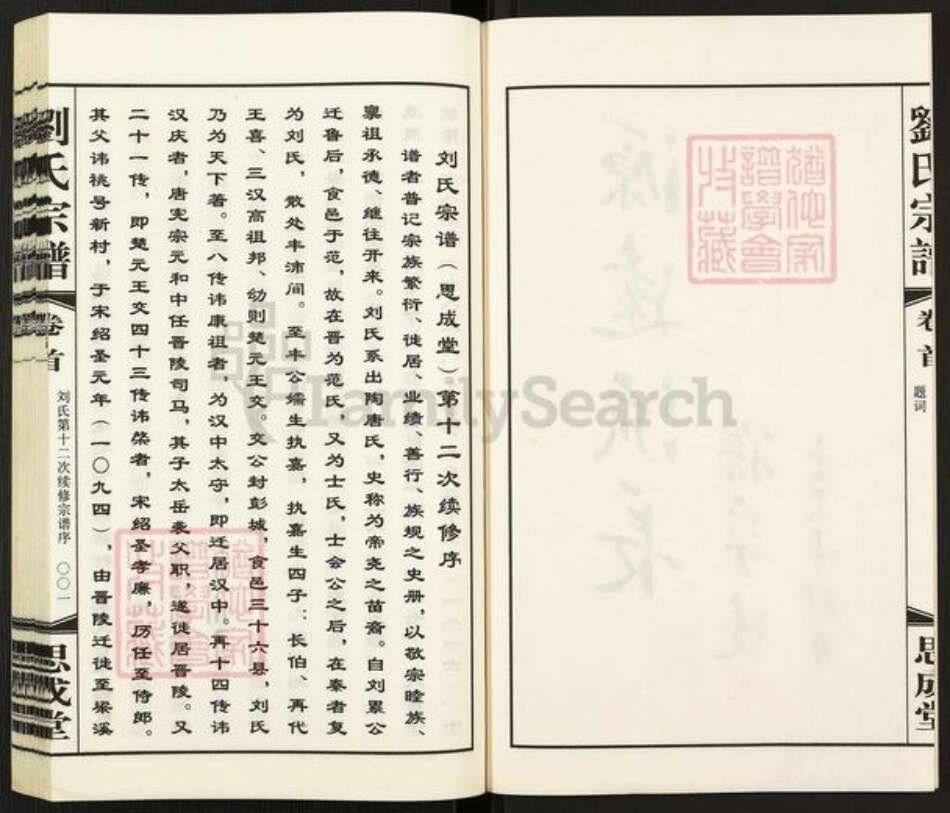 劉氏宗譜
卷首
题词
思成堂
猶他家
譜學會
收藏
刘氏宗谱（思成堂）第十二次续修序
谱者普记宗族繁衍、徙居、业绩、善行、族规之史册，以敬宗睦族、
禀祖承德、继往开来。刘氏系出陶唐氏，史称为帝尧之苗裔。自刘累公
迁鲁后，食邑于范，故在晋为范氏，又为士氏，士会公之后，在秦者复
为刘氏，散处丰沛间。至丰公嬬生执嘉，执嘉生四子：长伯、再代
王喜、三汉高祖邦、幼则楚元王交。交公封彭城，食邑三十六县，刘氏
乃为天下著。至八传讳康祖者，为汉中太守，即迁居汉中。再十四传讳
汉庆者，唐宪宗元和中任晋陵司马，其子太岳袭父职，遂徙居晋陵。又
二十一传，即楚元王交四十三传讳荣者，宋绍圣孝廉，历任至侍郎。
其父讳祧号新村，于宋绍圣元年（一〇九四），由晋陵迁徙至梁溪
劉氏宗譜
卷首
刘氏第十二次续修宗谱序
〇〇一
思成堂
猶他家
譜學會
收藏
FamilySearch